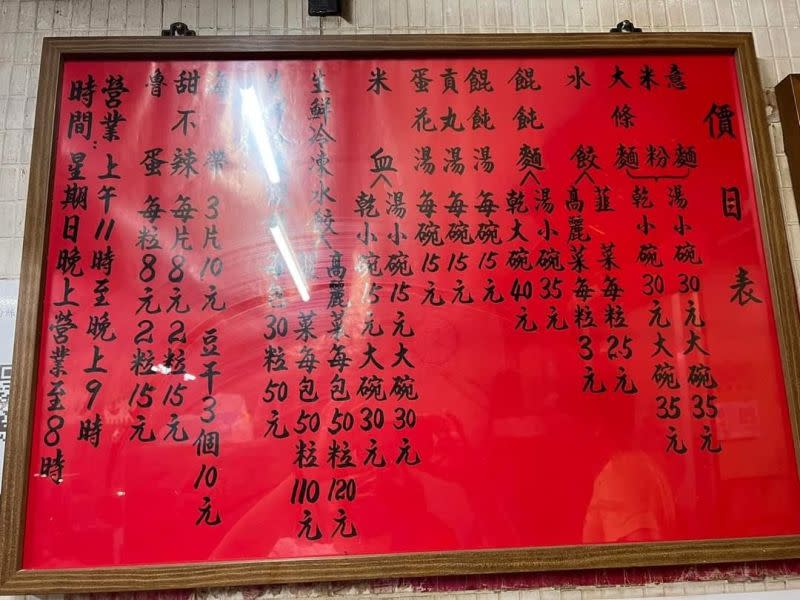 價目表
意麵
米粉
大條麵
湯小碗30元大碗35元
乾小碗30元大碗35元
水餃
韮菜每粒25元
高麗菜每粒3元
餛飩麵
湯小碗35元
乾大碗40元
餛飩湯每碗15元
貢丸湯每碗15元
蛋花湯每碗15元
米血
湯小碗15元大碗30元
乾小碗15元大碗30元
生鮮冷凍水餃
高麗菜每包50粒120元
菜每包50粒110元
每包30粒50元
海帶3片10元 豆干3個10元
甜不辣每片8元2粒15元
魯蛋每粒8元2粒15元
營業時間:
上午11時至晚上9時
星期日晚上營業至8時